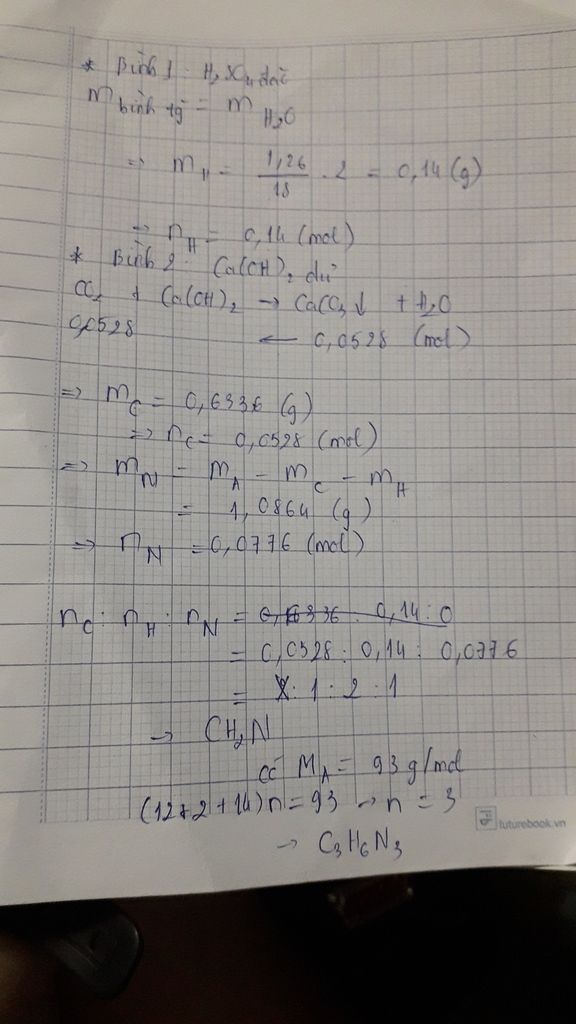 * Bình 1: H₂SO₄ đặc
m bình tăng = m H₂O
=> m H = 1,26/18 . 2 = 0,14 (g)
=> n H = 0,14 (mol)
* Bình 2: Ca(OH)₂ dư
CO₂ + Ca(OH)₂ → CaCO₃↓ + H₂O
0,0528 ← 0,0528 (mol)
=> m C = 0,6336 (g)
=> n C = 0,0528 (mol)
=> m N = m A - m C - m H
= 1,0864 (g)
=> n N = 0,0776 (mol)
n C : n H : n N = 0,6336 : 0,14 : 0
= 0,0528 : 0,14 : 0,0776
= 1 : 2 : 1
→ CH₂N
có M A = 93 g/mol
(12+2+14)n = 93 → n = 3
→ C₃H₆N₃
futurebook.vn